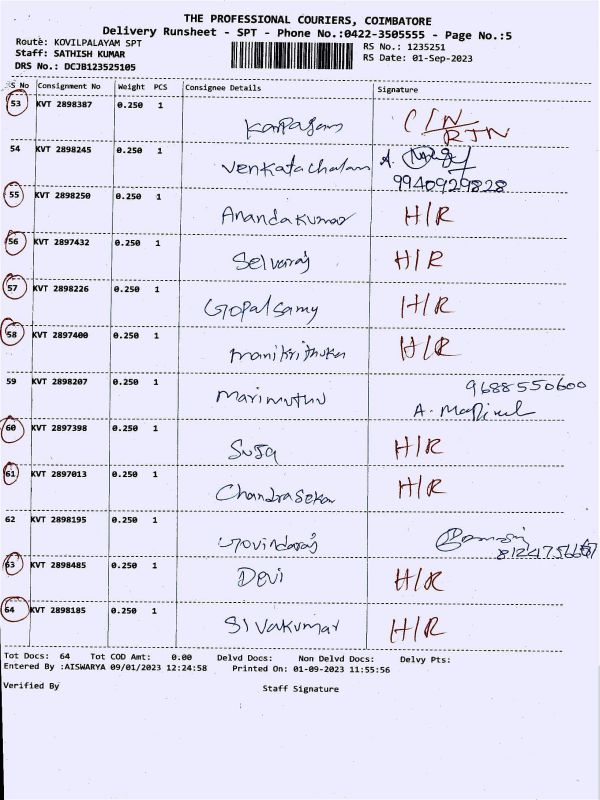 THE PROFESSIONAL COURIERS, COIMBATORE
Delivery Runsheet - SPT - Phone No.:0422-3505555 - Page No.:5
Route: KOVILPALAYAM SPT
RS No.: 1235251
Staff: SATHISH KUMAR
RS Date: 01-Sep-2023
DRS No.: DCJB123525105
S No Consignment No Weight PCS Consignee Details Signature
53 KVT 2898387 0.250 1 Karpagam C/N RTN
54 KVT 2898245 0.250 1 Venkatachalam A.
9940929828
55 KVT 2898250 0.250 1 Anandakumar H/R
56 KVT 2897432 0.250 1 Selvaraj H/R
57 KVT 2898226 0.250 1 Gopalsamy H/R
58 KVT 2897400 0.250 1 H/R
59 KVT 2898207 0.250 1 Marimuthu 9688550600
A.
60 KVT 2897398 0.250 1 Suja H/R
61 KVT 2897013 0.250 1 Chandrasekar H/R
62 KVT 2898195 0.250 1 Govindaraj
63 KVT 2898485 0.250 1 Devi H/R
64 KVT 2898185 0.250 1 Sivakumar H/R
Tot Docs: 64 Tot COD Amt: 0.00 Delvd Docs: Non Delvd Docs: Delvy Pts:
Entered By :AISWARYA 09/01/2023 12:24:58 Printed On: 01-09-2023 11:55:56
Verified By Staff Signature